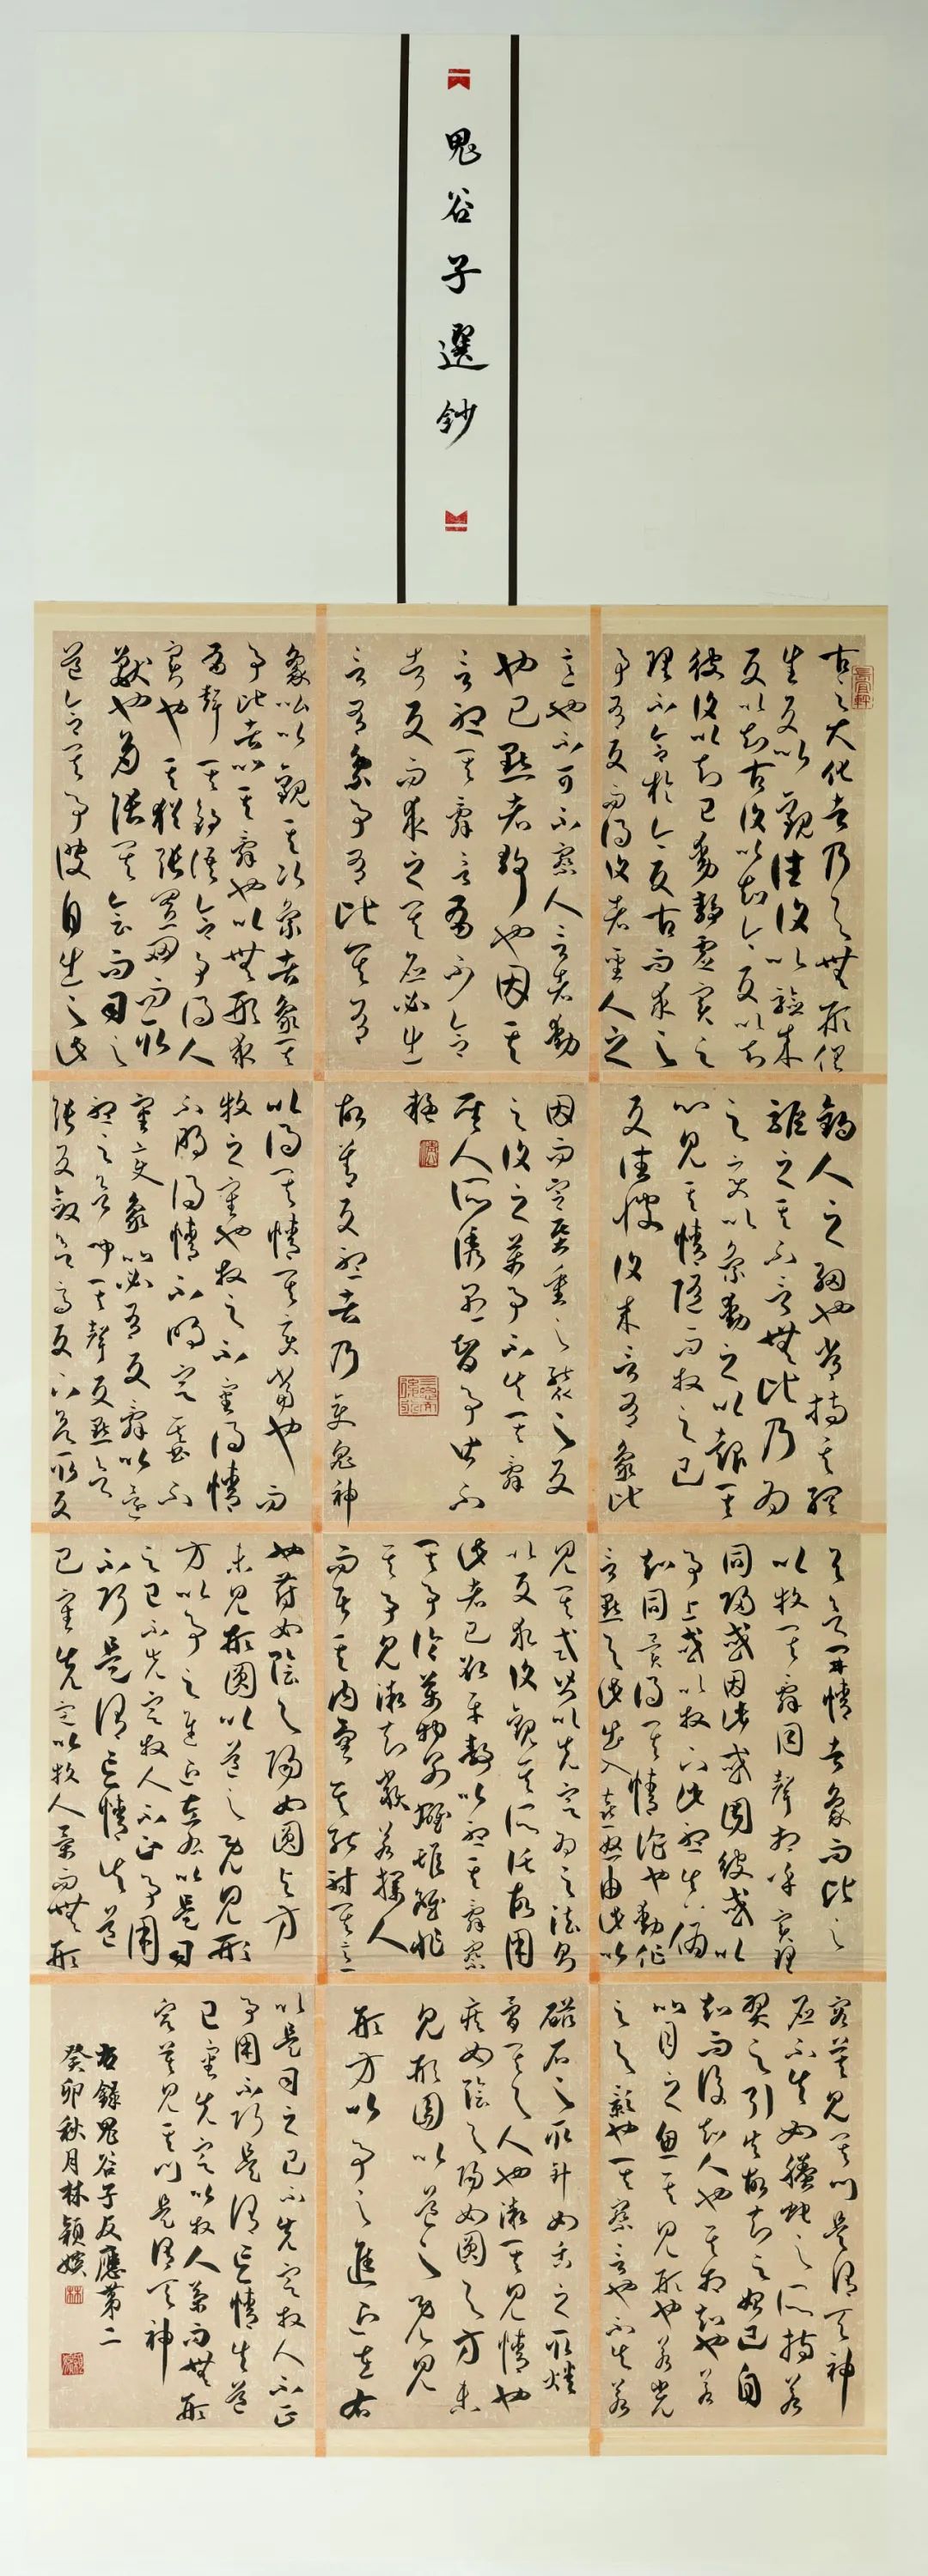 鬼谷子選鈔
古之大化者乃與無形俱
生反以觀往復以驗來
反以知古復以知今反以知
彼復以知己動靜虛實之
理不合於今反古而求之
事有反而得復者聖人之
意也不可不察人言者動
也己默者靜也因其
言聽其辭言有不合
者反而求之其應必出
言有象事有比其有
象比以觀其次象者象其
事比者比其辭也以無形求
有聲其釣語合事得人
實也其猶張罝網而取
獸也多張其會而司之
道合其事彼自出之此
釣人之網也常持其網
驅之其不言無比乃為
之變以象動之以報其
心見其情隨而牧之己
反往彼復來言有象比
因而定基重之襲之反
之復之萬事不失其辭
聖人所誘愚智事皆不
疑
故善反聽者乃變鬼神
以得其情其變當也而
牧之審也牧之不審得情
不明得情不明定基不
審變象比必有反辭以還
聽之欲聞其聲反默欲
張反斂欲高反下欲取反
與欲開情者象而比之
以牧其辭同聲相呼實理
同歸或因此或因彼或以
事上或以牧下此聽真偽
知同異得其情詐也動作
言默與此出入喜怒由此以
見其式皆以先定為之法則
以反求復觀其所託故用
此者己欲平靜以聽其辭察
其事論萬物別雄雌雖非
其事見微知類若探人
而居其內量其能射其意
也符如陰與陽如圓與方
未見形圓以道之既見形
方以事之進退左右以是司
之己不先定牧人不正事用
不巧是謂忘情失道
己審先定以牧人策而無形
容莫見其門是謂天神
應不失如螣蛇之所指若
羿之引矢故知之始己自
知而後知人也其相知也若
比目之魚其見形也若光
之與影也其察言也不失若
磁石之取針如舌之取燔
骨其與人也微其見情也
疾如陰與陽如圓與方未
見形圓以道之既見
形方以事之進退左右
以是司之己不先定牧人不正
事用不巧是謂忘情失道
己審先定以牧人策而無形
容莫見其門是謂天神
右錄鬼谷子反應第二
癸卯秋月林穎